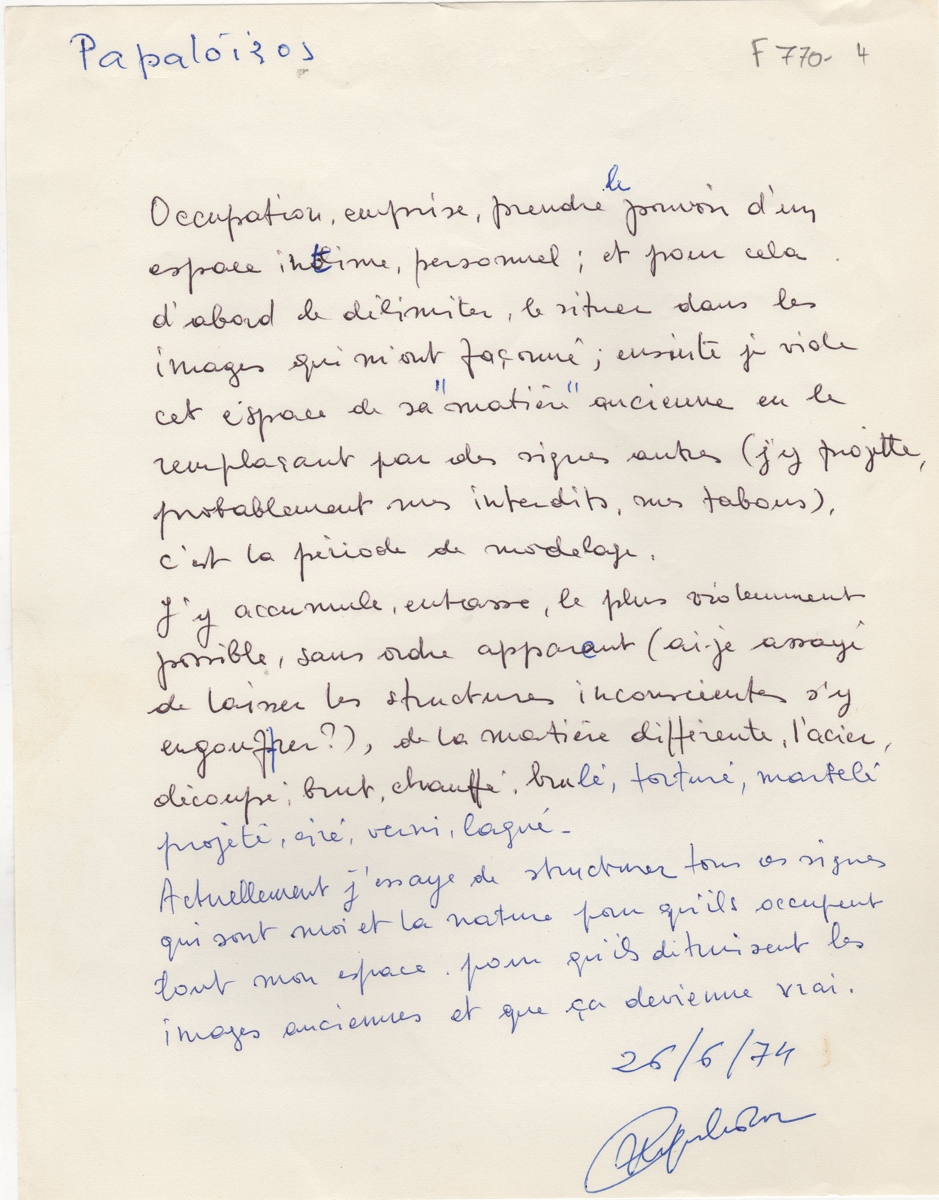 Papaloïzos
F 770- 4
Occupation, emprise, prendre le pouvoir d'un
espace intime, personnel ; et pour cela
d'abord le délimiter, le situer dans les
images qui m'ont façonné ; ensuite je vide
cet espace de sa "matière" ancienne en le
remplaçant par des signes autres (j'y projette,
probablement mes interdits, mes tabous),
c'est la période de modelage.
J'y accumule, entasse, le plus violemment
possible, sans ordre apparent (ai-je assayé
de laisser les structures inconscientes s'y
engouffrer?), de la matière différente, l'acier,
découpé, brut, chauffé, brulé, torturé, martelé
projeté, ciré, verni, laqué -
Actuellement j'essaye de structurer tous ces signes
qui sont moi et la nature pour qu'ils occupent
tout mon espace. pour qu'ils détruisent les
images anciennes et que ça devienne vrai.
26/6/74